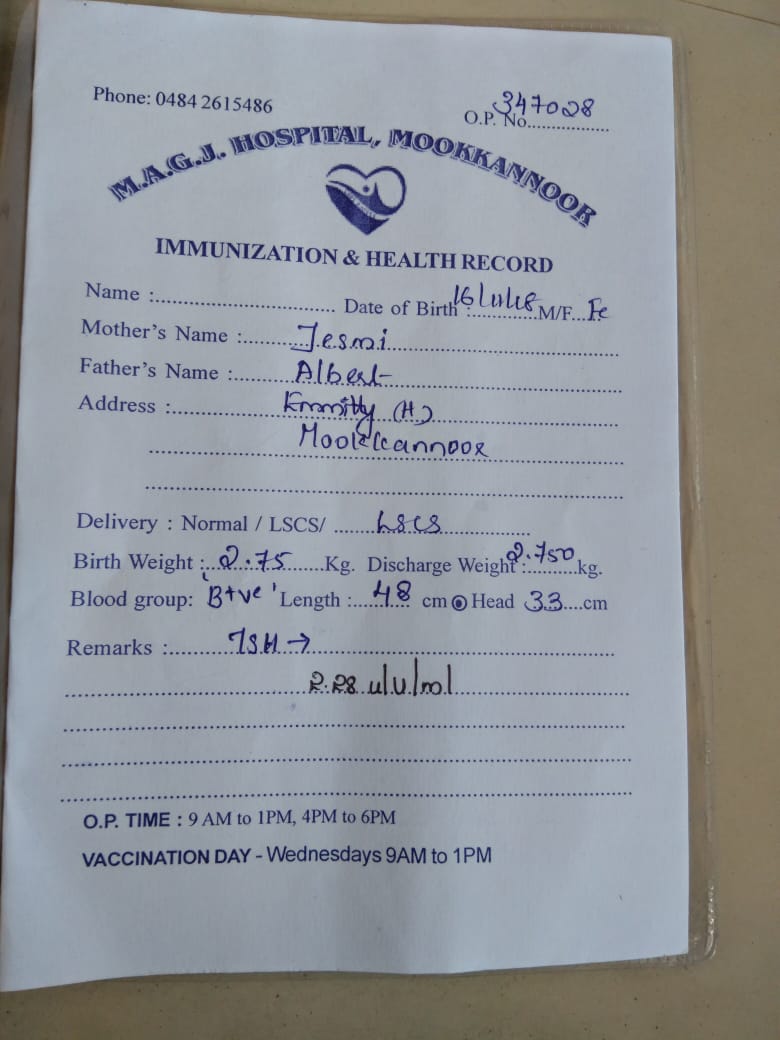 Phone: 0484 2615486
O.P. No. 347028
M.A.G.J. HOSPITAL, MOOKKANNOOR
IMMUNIZATION & HEALTH RECORD
Name :.............................. Date of Birth : 16/11/18 M/F... Fe
Mother's Name :.......... Jesmi
Father's Name :.......... Albert
Address :.......... (H)
Mookkannoor
Delivery : Normal / LSCS/ ...... LSCS
Birth Weight : 2.75 ......Kg. Discharge Weight : 2.750 kg.
Blood group: 'B+ve' Length :.... 48 cm Head 33....cm
Remarks :.......... TSH →
2.28 uIU/ml
O.P. TIME : 9 AM to 1PM, 4PM to 6PM
VACCINATION DAY - Wednesdays 9AM to 1PM